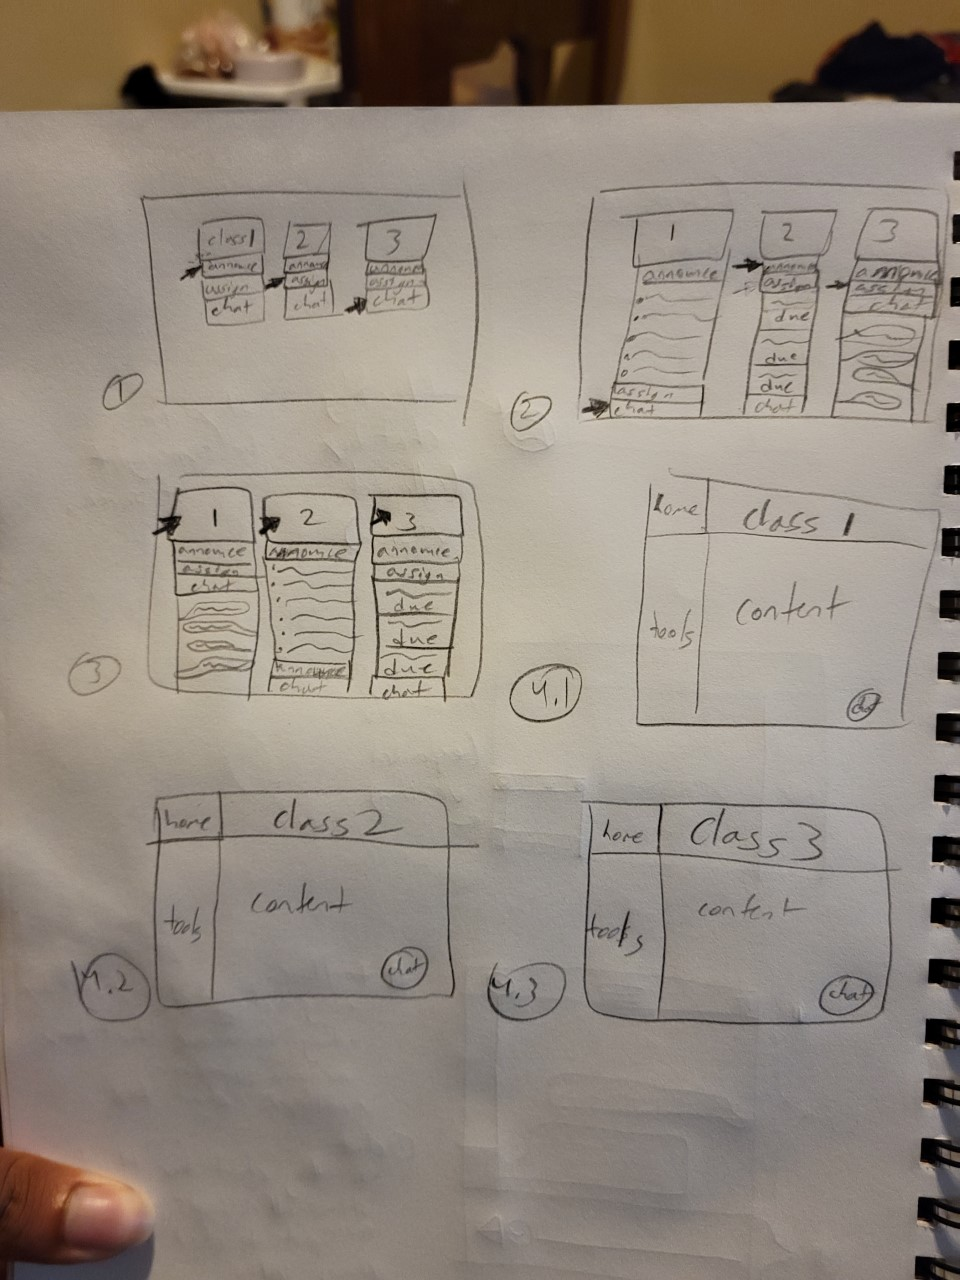 class 1
announce
assign
chat
2
announce
assign
chat
3
announce
assign
chat
1
1
announce
assign
chat
2
announce
assign
due
due
due
chat
3
announce
assign
chat
2
1
announce
assign
chat
2
announce
announce
chat
3
announce
assign
due
due
due
chat
3
home
class 1
tools
content
chat
4.1
home
class 2
tools
content
chat
4.2
home
Class 3
tools
content
chat
4.3